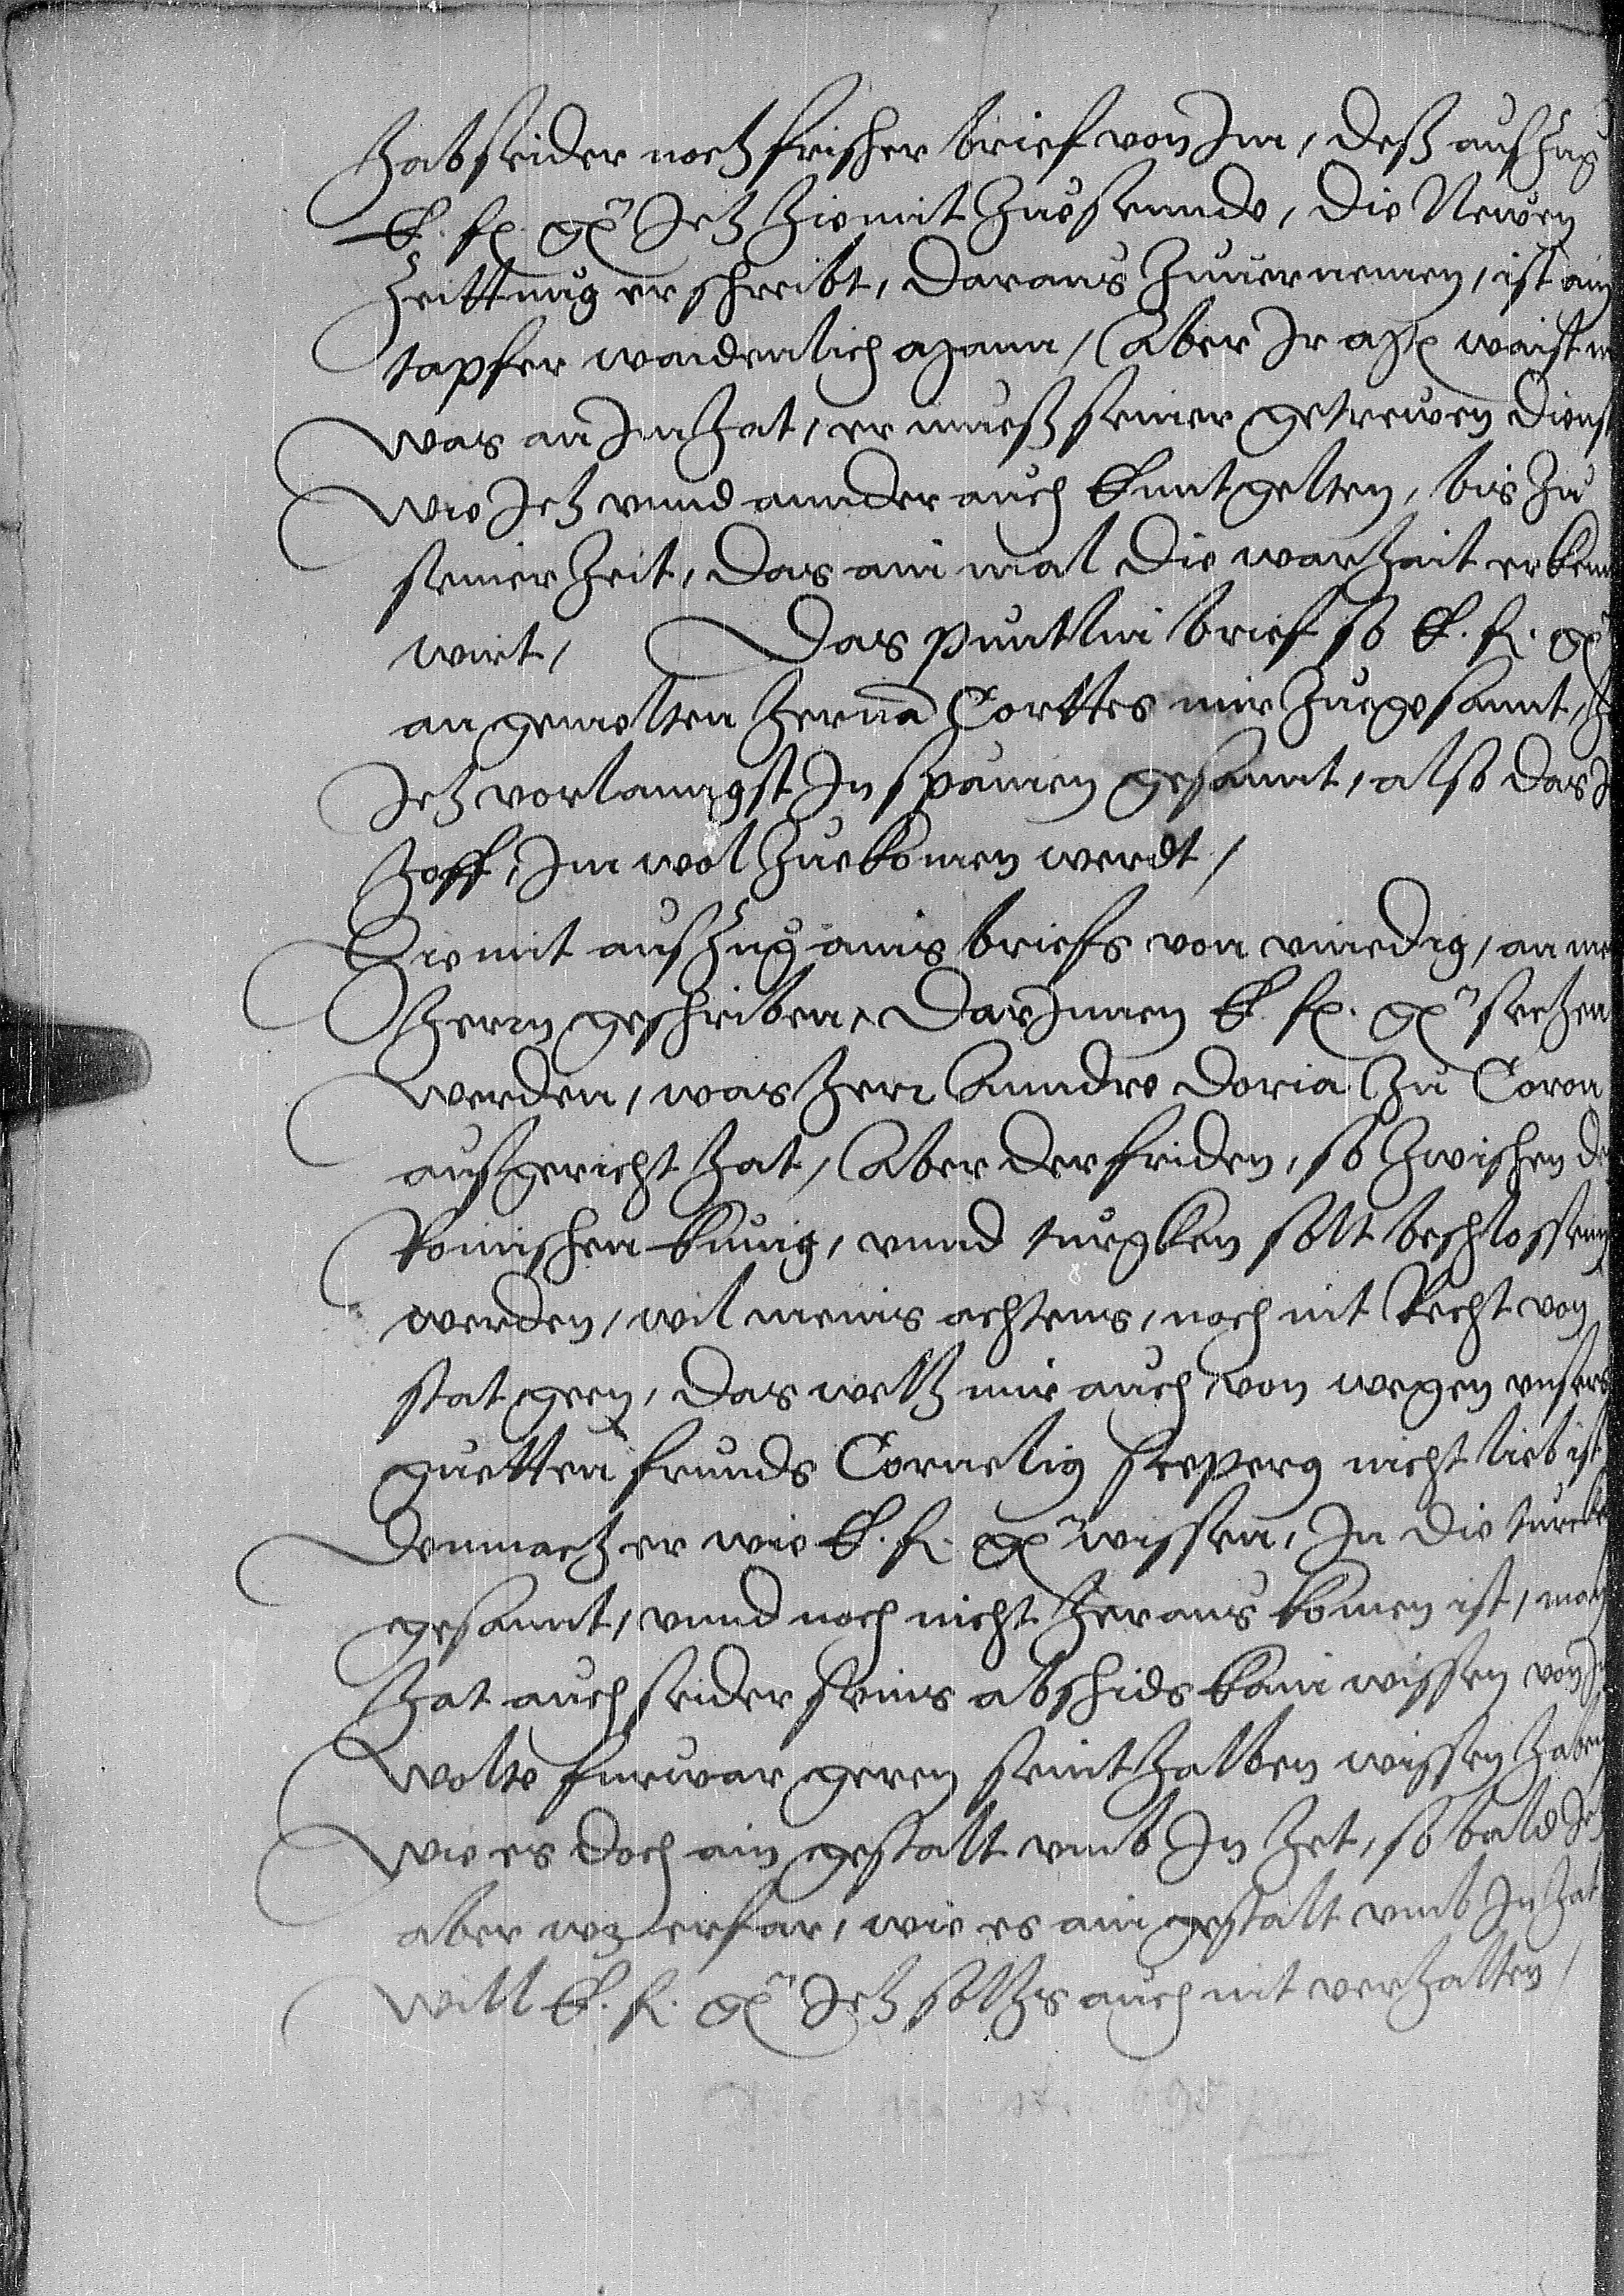 hab seider noch frischer brief von Jm, desz auszug
E. f. g. Jch hiemit zuesennde, die Newen
Zeittung er schreibt, daraus zuuernemen, ist ain
tapfer waidenlich man, Aber Jr mt waist n
was an Jm hat, er muesz seiner getrewen dienst
wie Jch vnnd annder auch kunt gelten, bis zu
seiner Zeit, das ain mal die warhait erkenn
wirt, Das puntlin brief so E. f. g.
an gemelten herna Corttes mir zuegesannt, h
Jch vorlanngst Jn Spanien gesannt, also das J
hoff, Jm wol zuekomen werdt,
Hiemit auszug ains briefs von vinedig, an me
herrn geschriben, DarJnnen E. f. g. sehen
werden, was herr Anndre Doria zu Coron
auszgericht hat, Aber der friden, so zwischen de
Romischen kunig, vnnd turgken solt beschlossenn
werden, wil meins achtens, noch nit Recht von
stat geen, das welch mir auch von wegen vnsers
guetten frunds Cornelig sceperg nicht lieb ist
Demnach er wie E. f. g. wissen, Jn die turcke
gesannt, vnnd noch nicht heraus komen ist, man
hat auch seider seins abschids kain wissen von J
Wolte furwar geren seinthalben wissen haben
wie es doch ain gestalt vmb Jn het, so bald Jch
aber wz erfar, wie es ain gestalt vmb Jn hat
will E. f. g. Jch solhs auch nit verhalten,